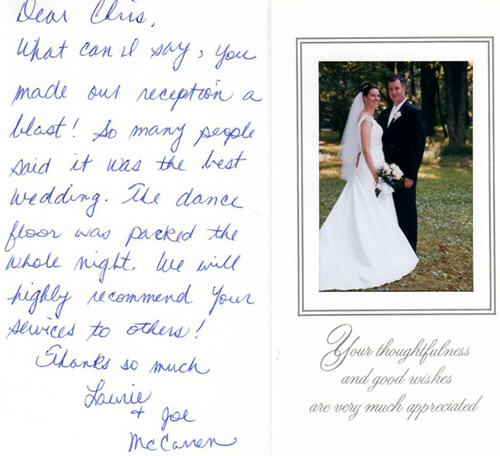 Dear Chris,
What can I say, you
made our reception a
blast! So many people
said it was the best
wedding. The dance
floor was packed the
whole night. We will
highly recommend your
services to others!
Thanks so much
Laurie
+ Joe
McCarren
Your thoughtfulness
and good wishes
are very much appreciated